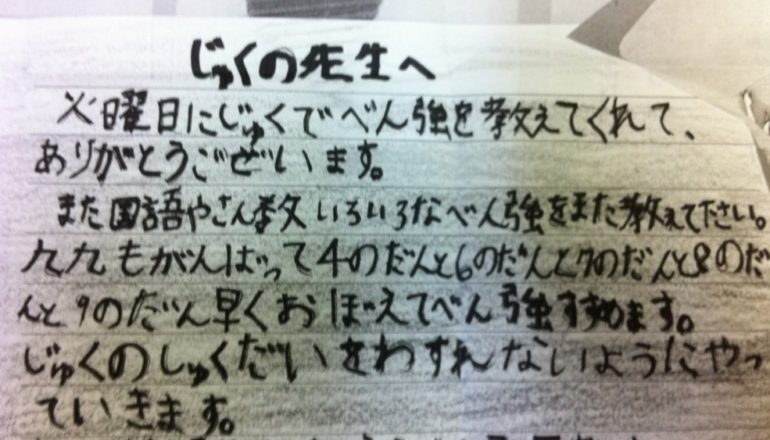 じゅくの先生へ
火曜日にじゅくでべん強を教えてくれて、
ありがとうございます。
また国語やさん教いろいろなべん強をまた教えてださい。
九九もがんばって4のだんと6のだんと7のだんと8のだ
んと9のだん早くおぼえてべん強すすめます。
じゅくのしゅくだいをわすれないようにやっ
ていきます。